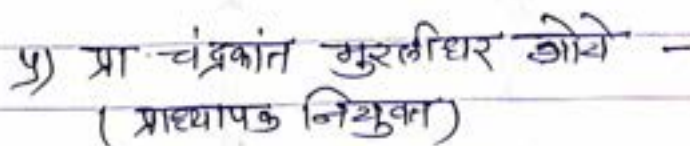 ५) प्रा. चंद्रकांत मुरलीधर -
( प्राध्यापक नियुक्त )